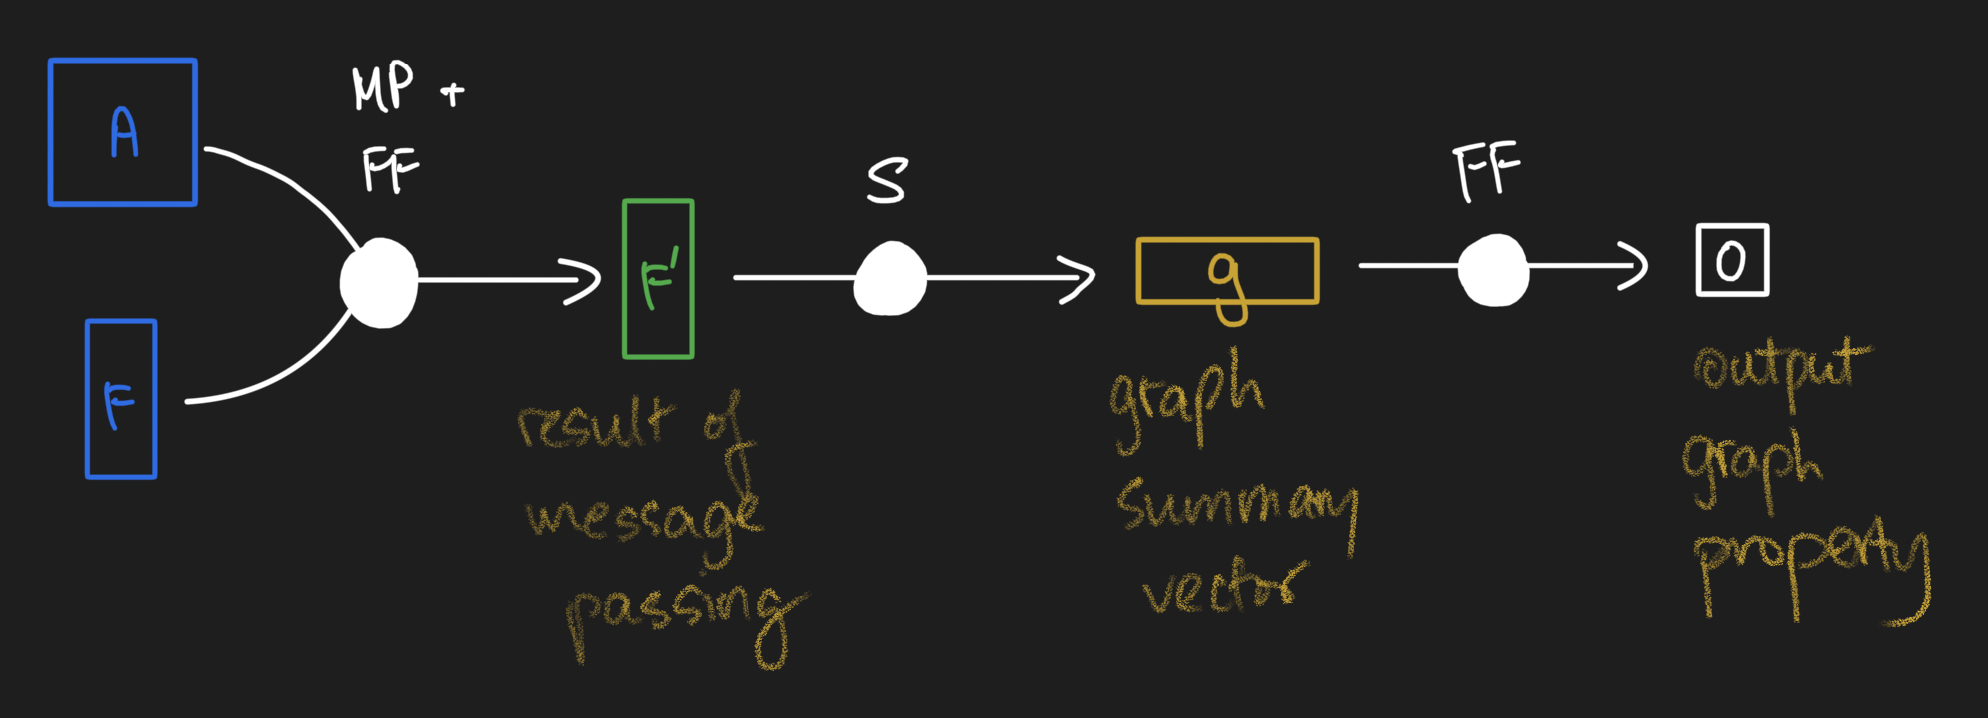 A
MP +
FF
F
F'
result of
message
passing
S
g
graph
summary
vector
FF
O
output
graph
property